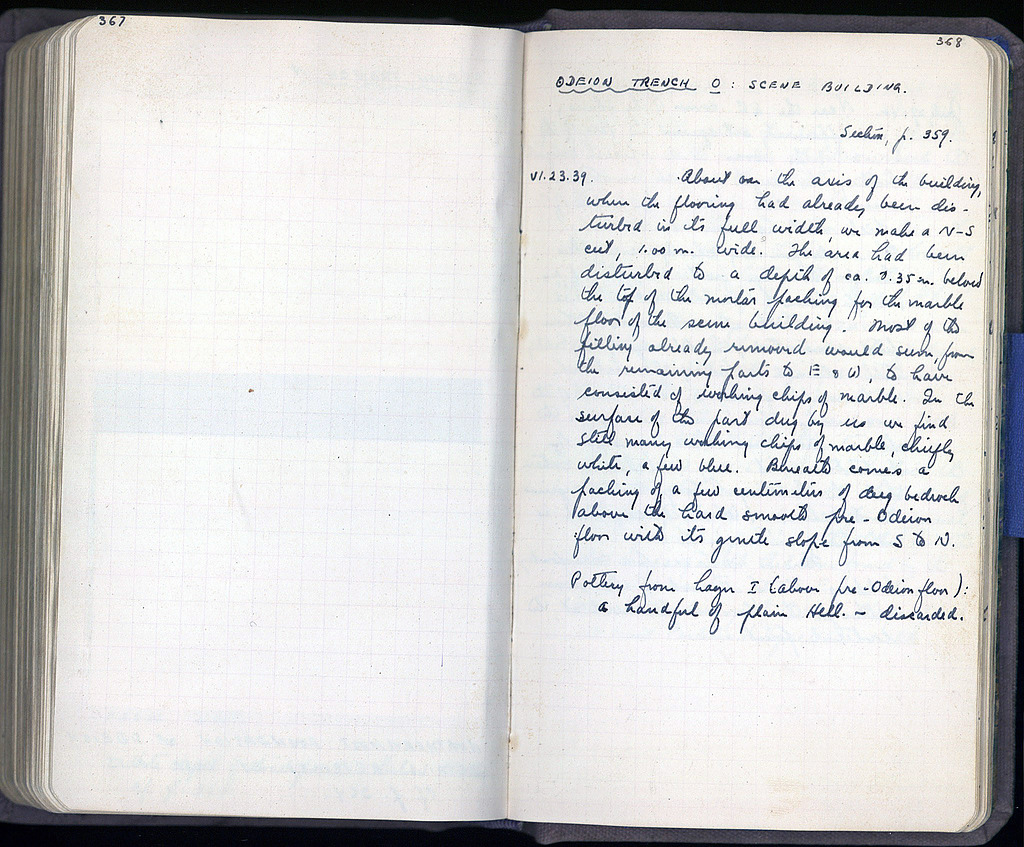 367
368
ODEION TRENCH O : SCENE BUILDING.
Section, p. 359.
VI.23.39. About on the axis of the building,
when the flooring had already been dis-
turbed in its full width, we make a N-S
cut, 1.00 m. wide. The area had been
disturbed to a depth of ca. 0.35 m. below
the top of the mortar packing for the marble
floor of the scene building. Most of the
filling already removed would seem, from
the remaining parts to E & W, to have
consisted of working chips of marble. In the
surface of the part dug by us we find
still many working chips of marble, chiefly
white, a few blue. Beneath comes a
packing of a few centimeters of dug bedrock
above the hard smooth pre-Odeion
floor with its gentle slope from S to N.
Pottery from Layer I (above pre-Odeion floor):
a handful of plain Hell. - discarded.